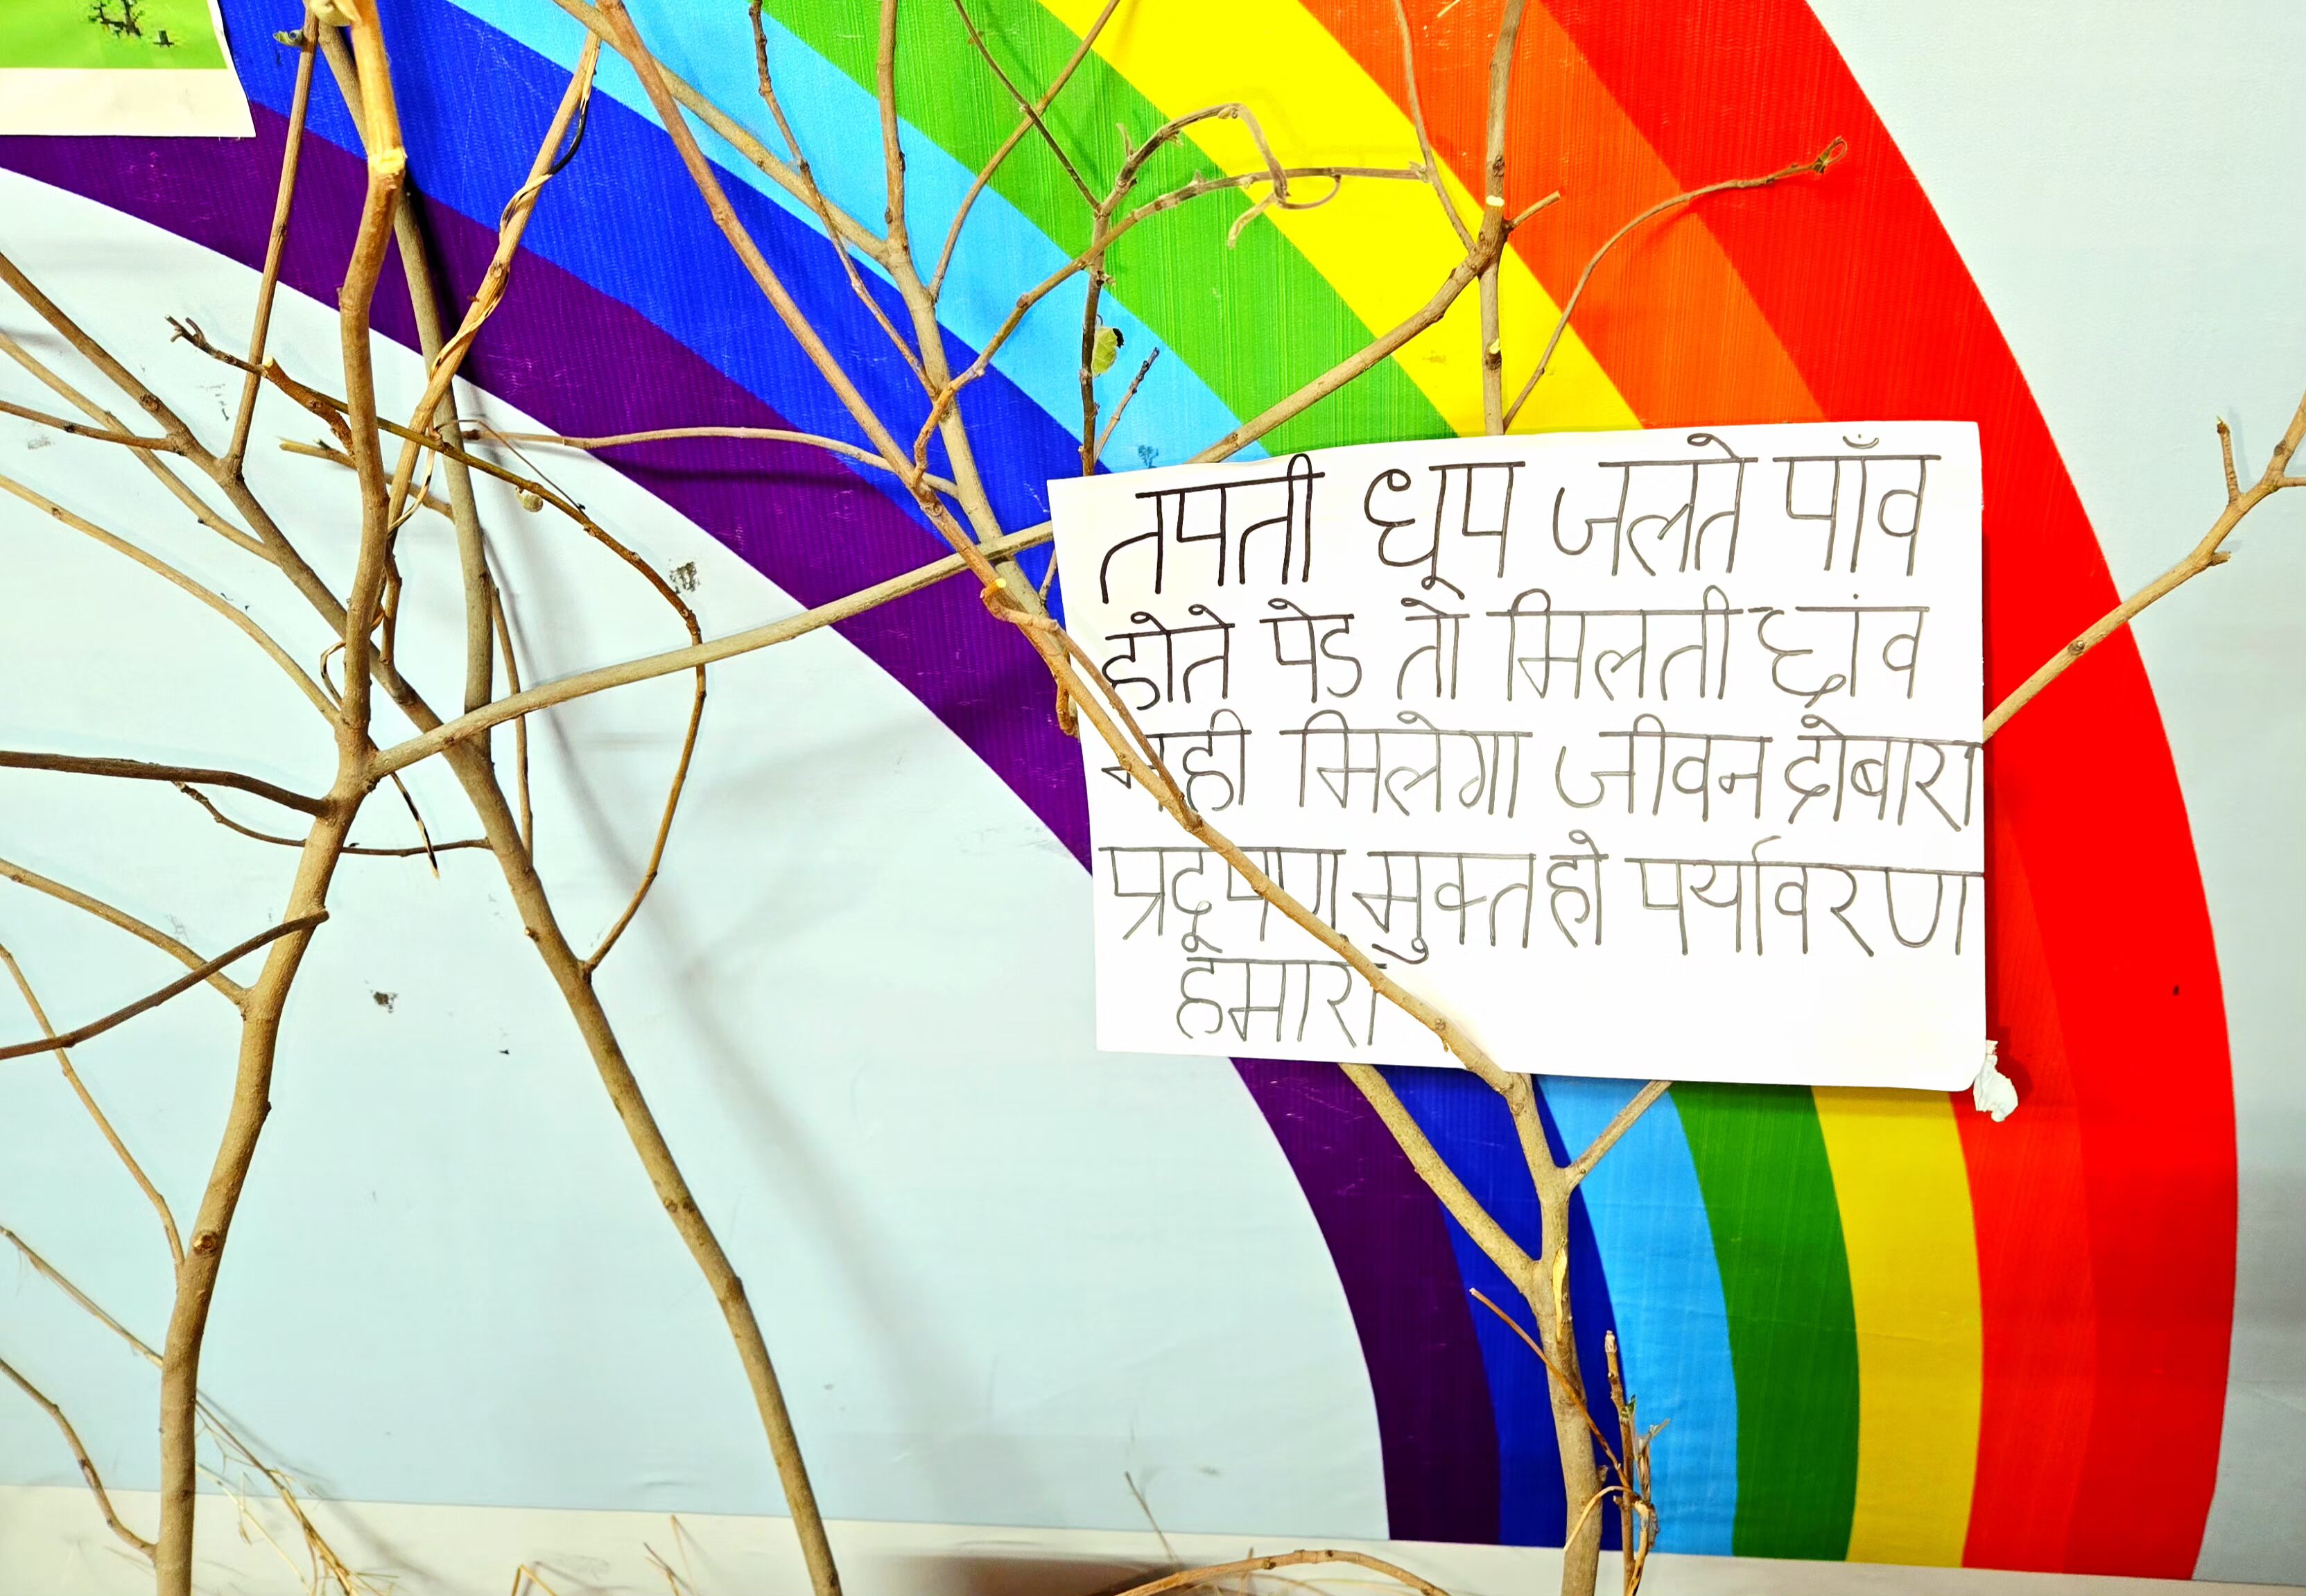 तपती धूप जलते पाँव
होते पेड तो मिलती छांव
नही मिलेगा जीवन दोबारा
प्रदूषण मुक्त हो पर्यावरण
हमारा